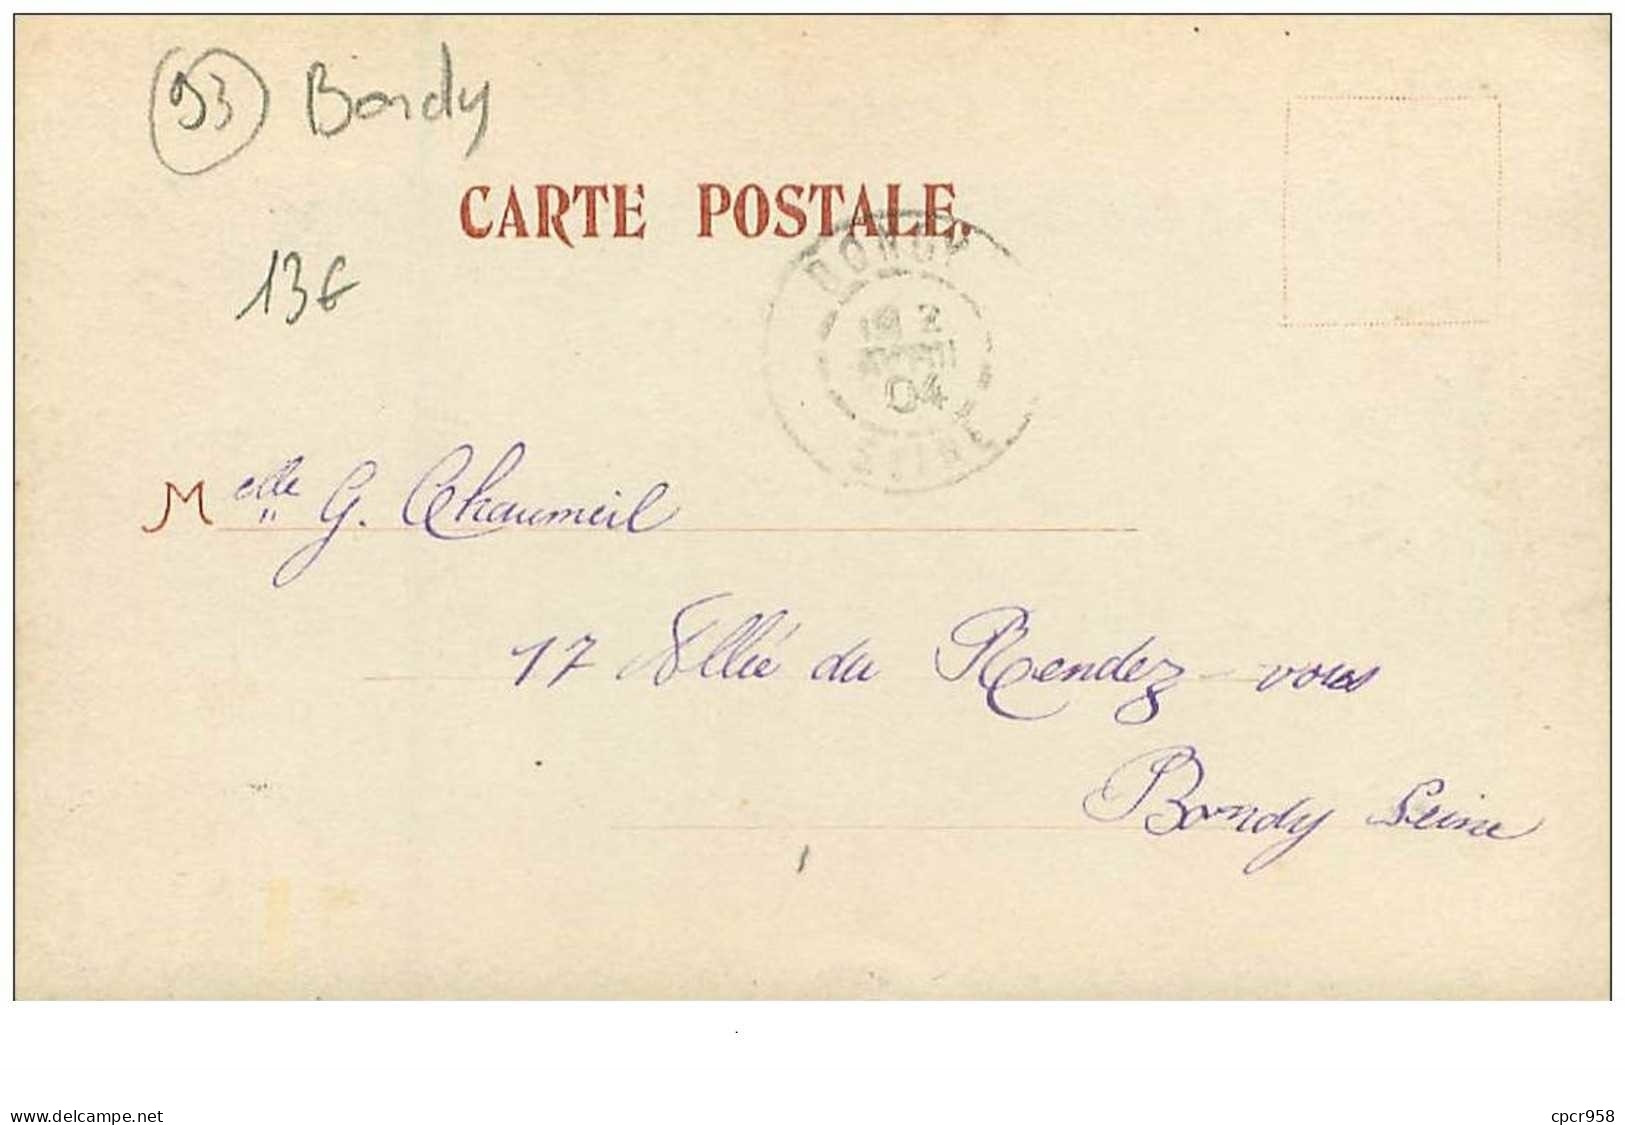 93 Bondy
CARTE POSTALE.
13€
BONDY
2
04
SEINE
Melle G. Chaumeil
17 Allée du Rendez-vous
Bondy Seine
www.delcampe.net
cpcr958